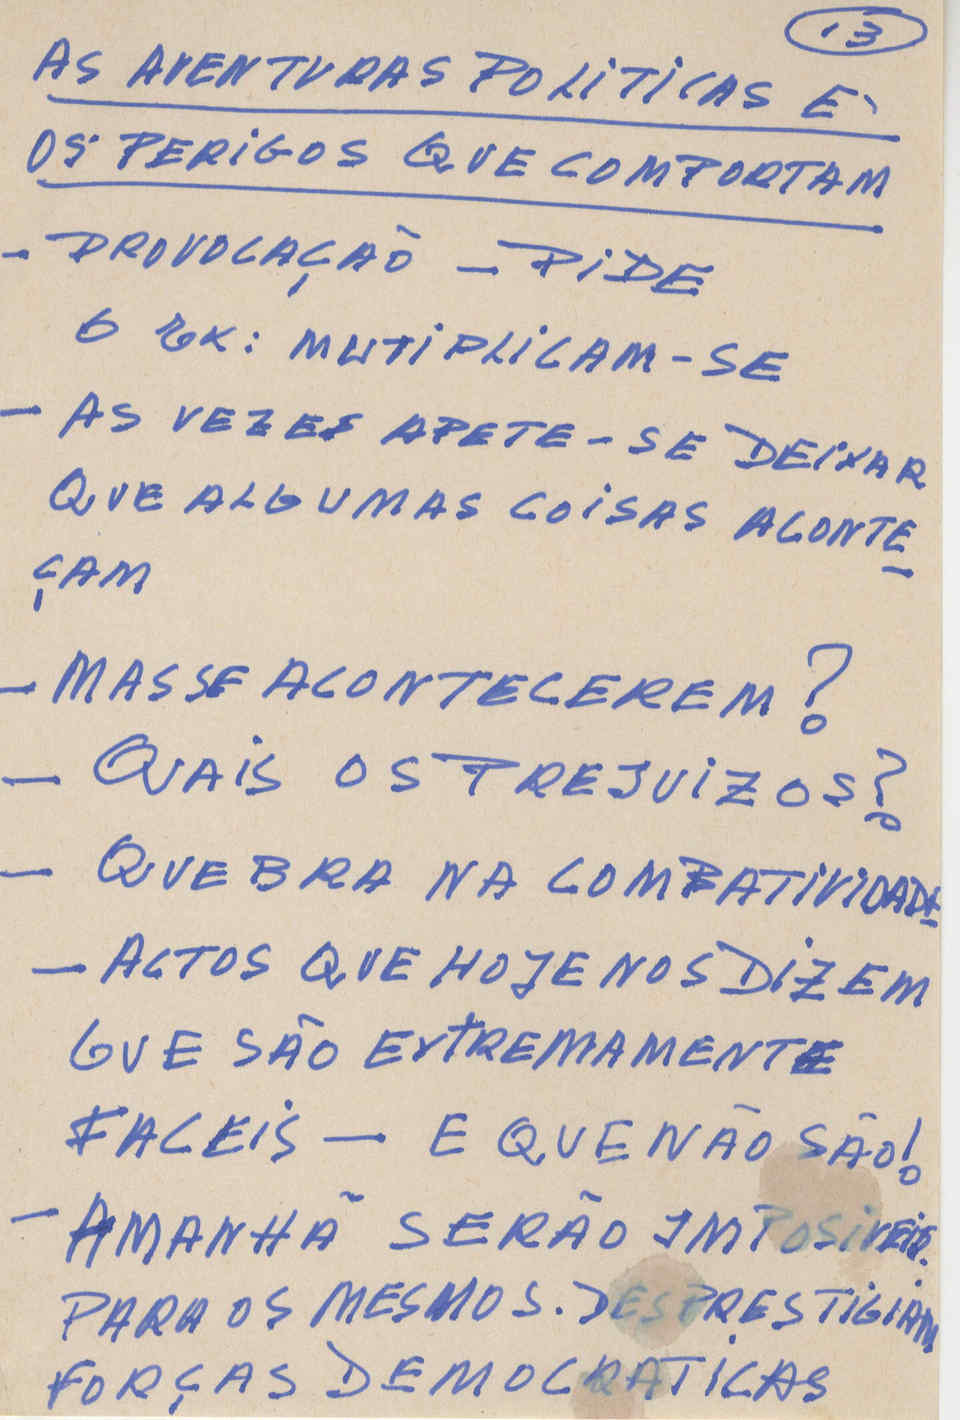 13
AS AVENTURAS POLITICAS E
OS PERIGOS QUE COMPORTAM
- PROVOCAÇAÕ - PIDE
6 EX: MUTIPLICAM-SE
- AS VEZES APETE-SE DEIXAR
QUE ALGUMAS COISAS ACONTE
ÇAM
- MAS SE ACONTECEREM?
- QUAIS OS PREJUIZOS?
- QUEBRA NA COMBATIVIDADE
- ACTOS QUE HOJE NOS DIZEM
QUE SÃO EXTREMAMENTE
FACEIS - E QUE NÃO SÃO!
- AMANHÃ SERÃO IMPOSIVEIS.
PARA OS MESMOS. DESPRESTIGIAM
FORÇAS DEMOCRATICAS